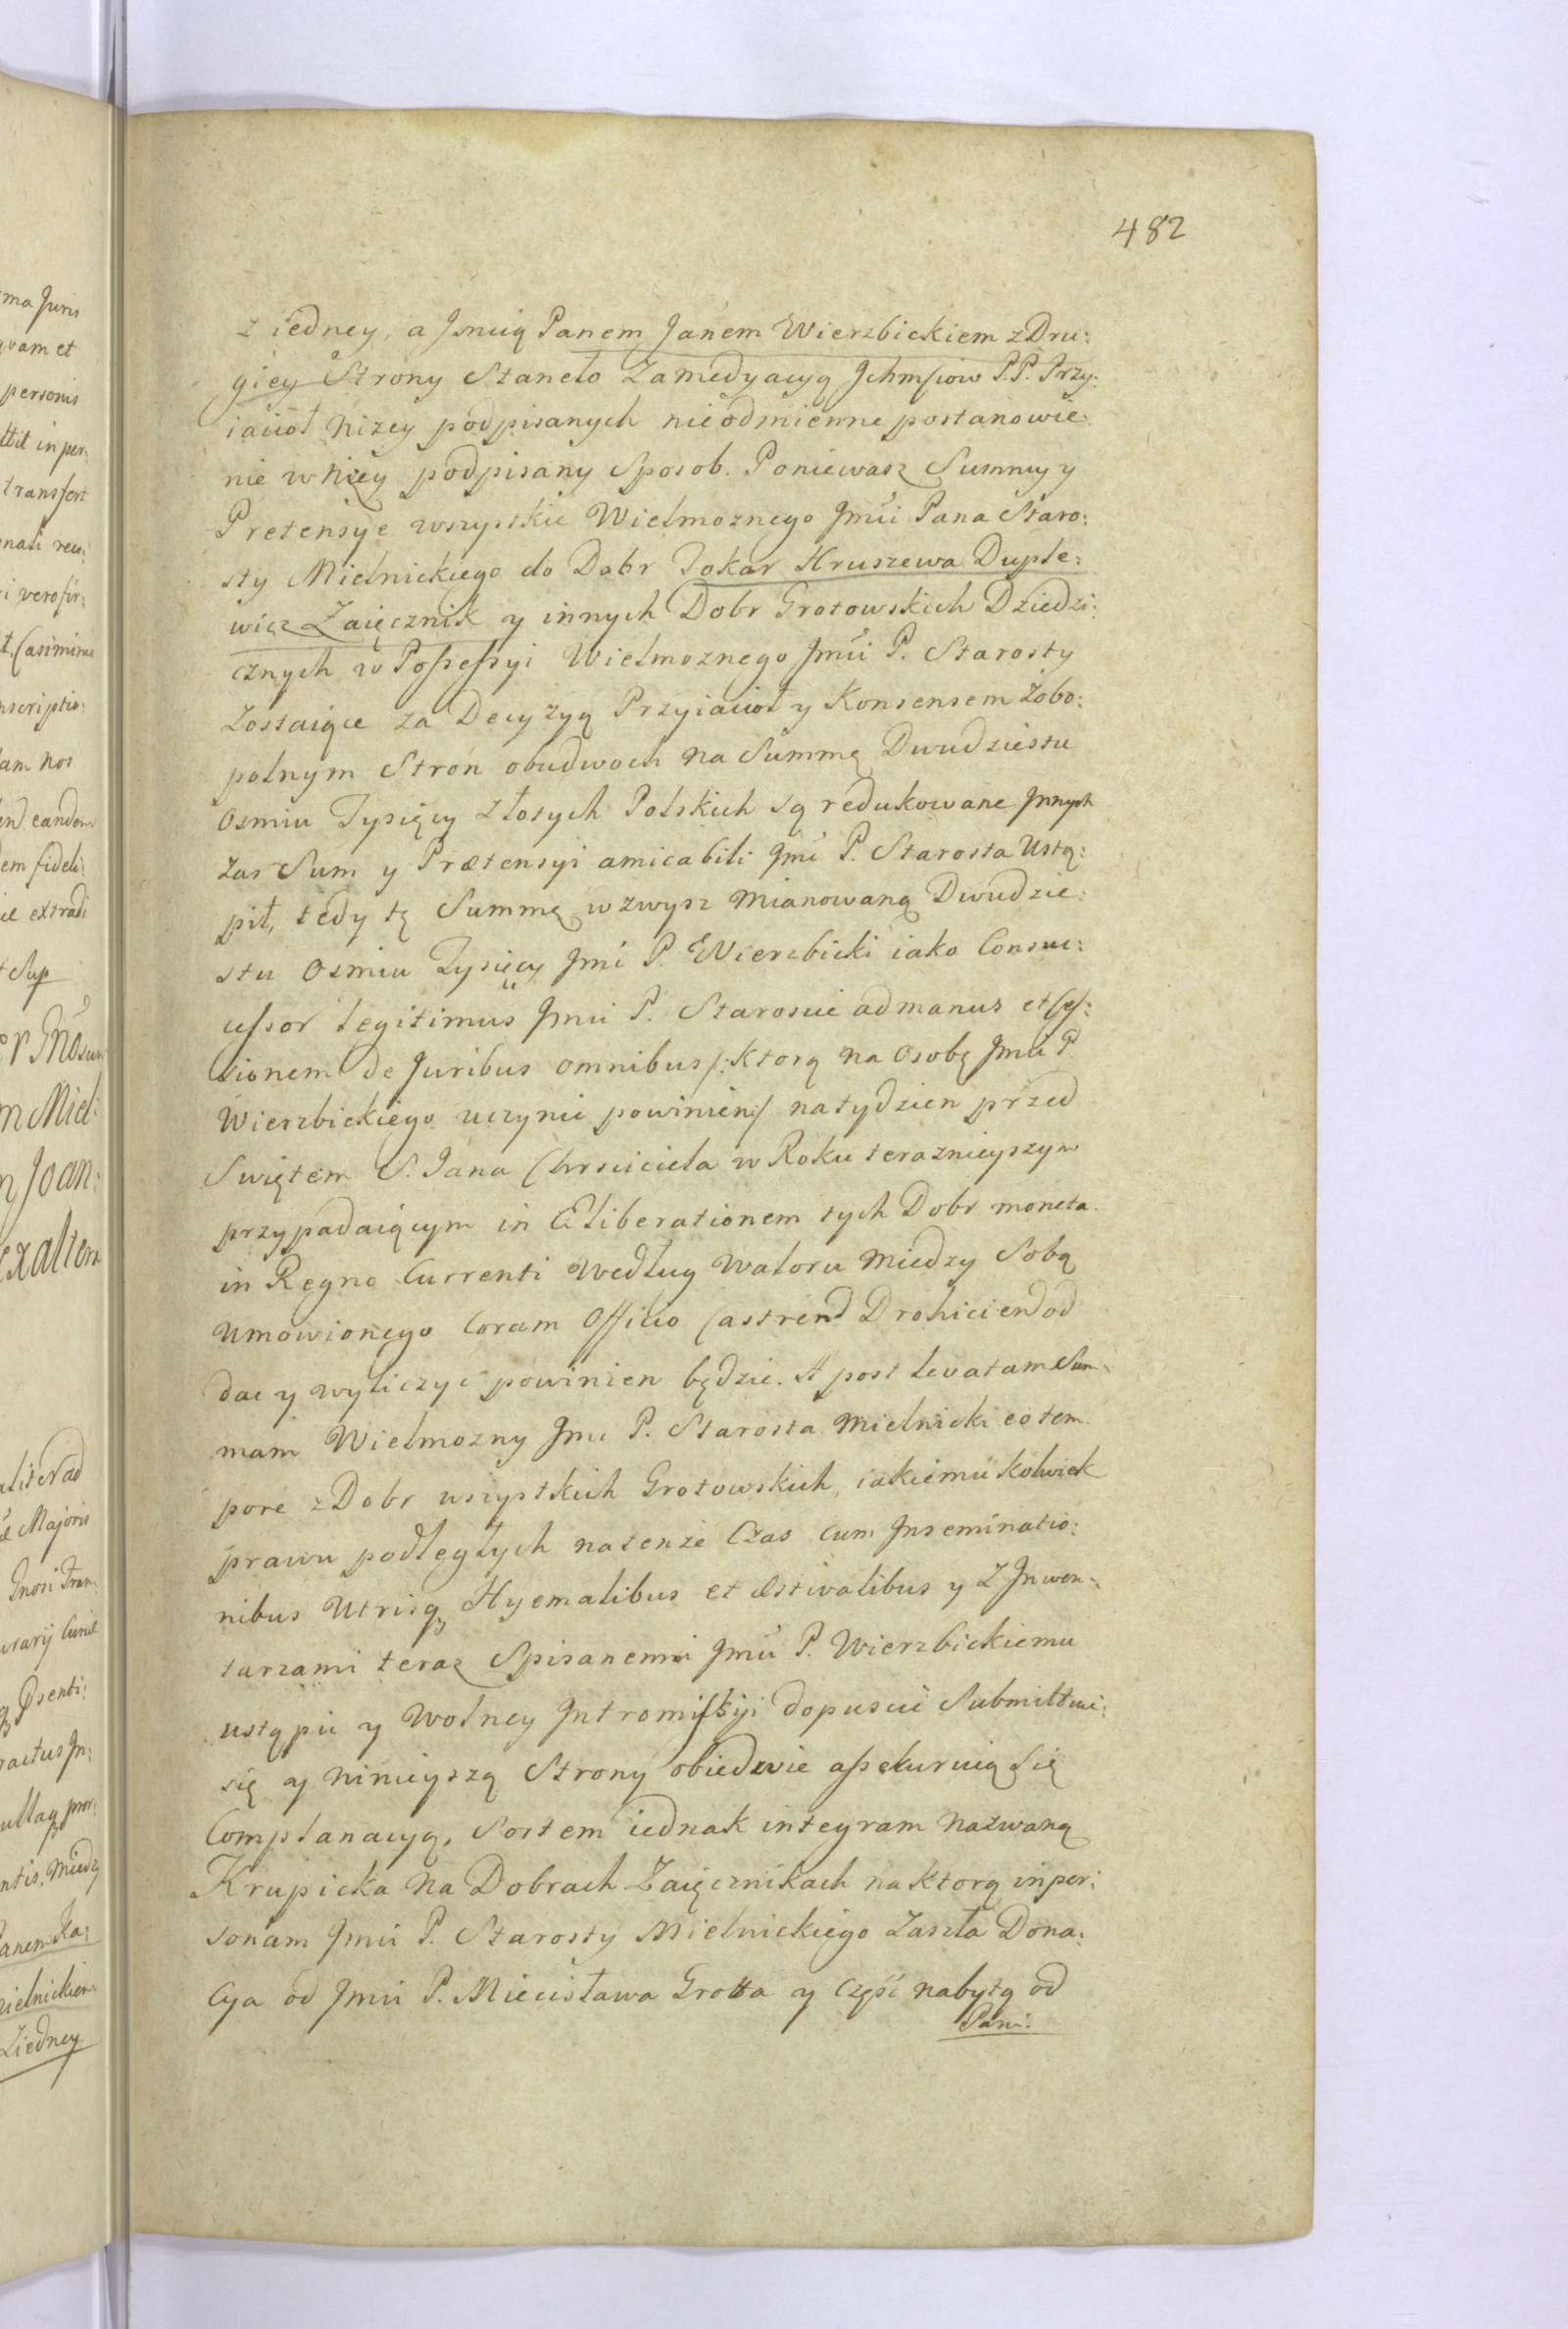 482
z iedney, a Jmcią Panem Janem Wierzbickiem z Dru:
giey Strony Staneło Zamedyacyą Ichmściow P.P. Przy:
iaciół niżey podpisanych nieodmienne postanowie:
nie w niżey podpisany Sposob. Poniewasz Summy y
Pretensye wszystkie Wielmoznego Jmći Pana Staro:
sty Mielnickiego do Dobr Tokar Hruszewa Duple:
wicz Zaięcznik y innych Dobr Grotowskich Dziedzi:
cznych w Possessyi Wielmoznego Jmći P. Starosty
Zostaiące za Decyzyą Przyiacioł y Konsensem Zobo:
polnym Stron obudwoch na Summę Dwudziestu
Osmiu Tysięcy Złotych Polskich są redukowane Jnnych
Zas Sum y Prætensyi amicabili Jmć P. Starosta Ustą:
pił, tedy tę Summę wzwysz mianowaną Dwudzie:
stu Osmiu Tysięcy Jmć P. Wierzbicki iako Consuc:
cessor legitimus Jmći P. Staroscie ad manus et Ces:
sionem de Juribus omnibus /: Ktorą na Osobę Jmći P.
Wierzbickiego uczynic powinien :/ na tydzien przed
Swiętem S. Jana Chrsciciela w Roku teraznieyszym
przypadaiącym in Eliberationem tych Dobr moneta
in Regno Currenti według waloru miedzy Sobą
Umowionego Coram Officio Castrens Drohiciens od
dac y wyliczyć powinien będzie. A post levatam Sum:
mam Wielmozny Jmć P. Starosta Mielnicki eo tem
pore z Dobr wszystkich Grotowskich, iakiemu kolwiek
prawu podległych na tenże Czas cum Inseminatio:
nibus Utrisq Hyemalibus et Æstivalibus y Z Inwen:
tarzami teraz Spisanemi Jmći P. Wierzbickiemu
ustąpić y Wolney Intromissyi dopuscić Submittuie
się y ninieyszą Strony obiedwie assekuruią się
Complanacyą, Sortem iednak integram nazwaną
Krupicka na Dobrach Zaięcznikach na ktorą in per:
sonam Jmći P. Starosty Mielnickiego Zaszła Dona:
cya od Jmći P. Miecisława Grotta y Część nabytą od
Pani.